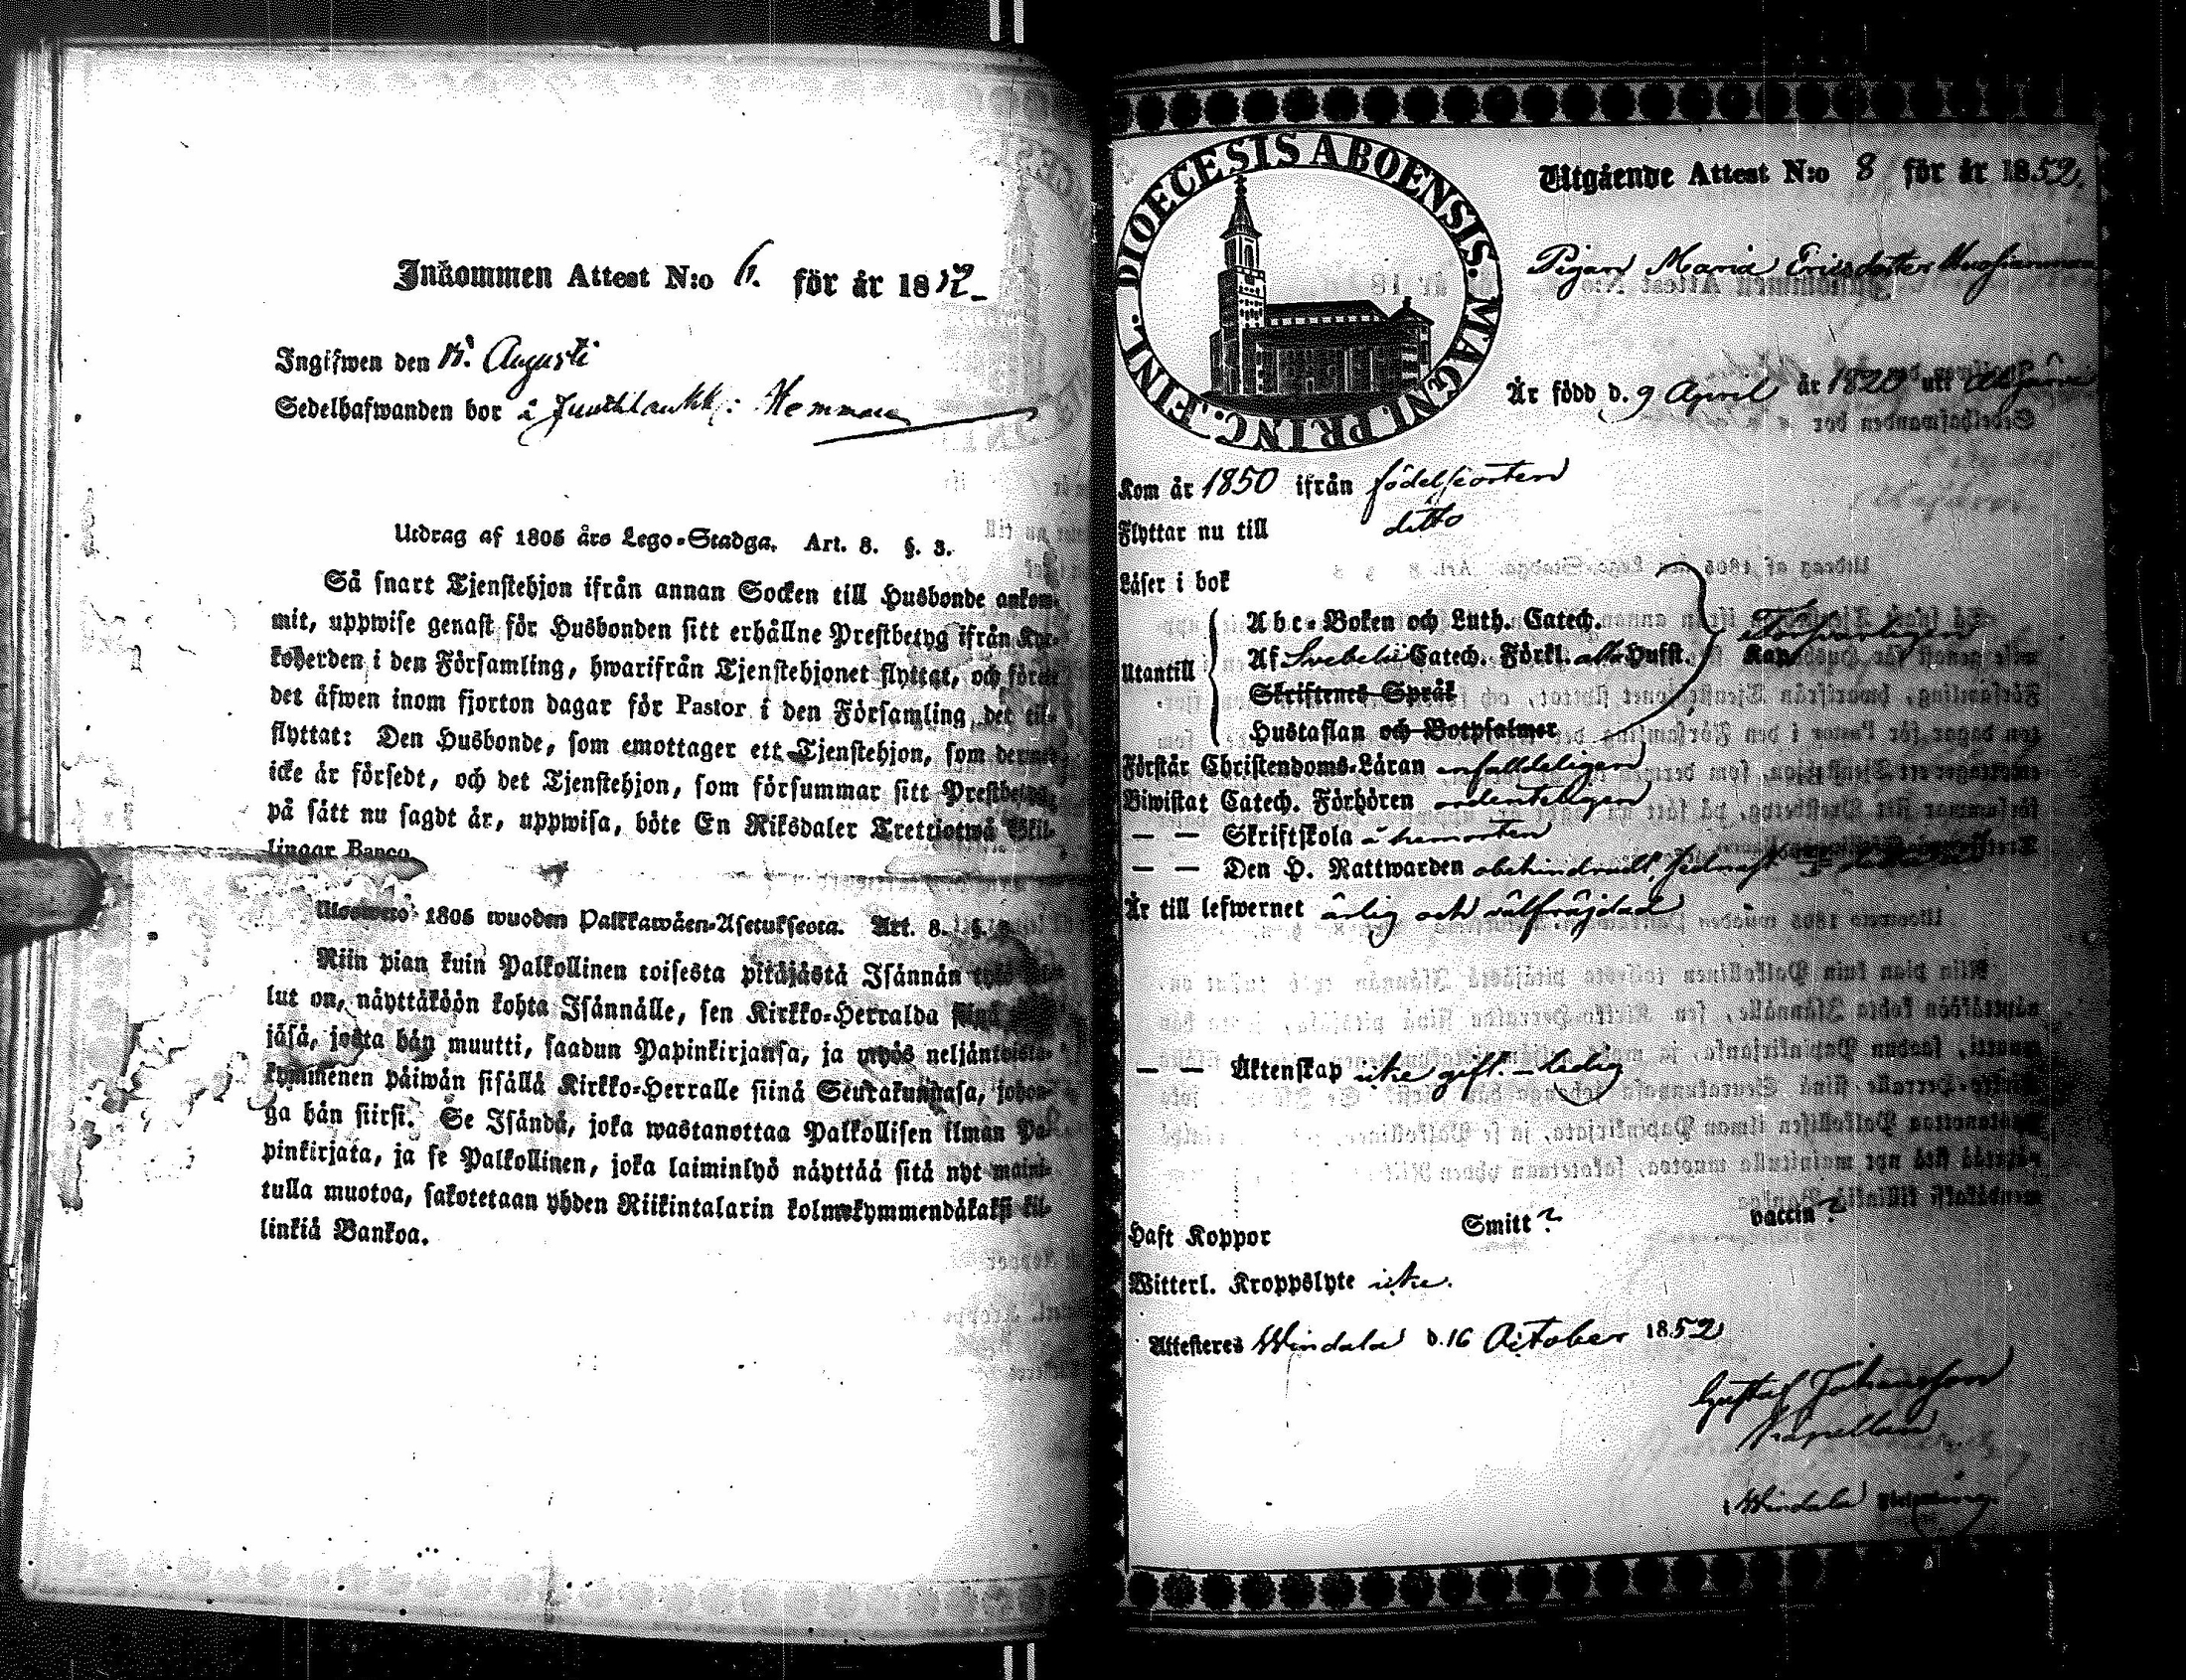 Inkommen Attest N:o 6. för år 1852
Ingifwen den Augusti
Sedelhafwanden bor å Hemman
Utdrag af 1805 års Lego-Stadga. Art. 8. §. 3.
Så snart Tjenstehjon ifrån annan Socken till Husbonde ankom-
mit, uppwise genast för Husbonden sitt erhållne Prestbetyg ifrån Kyr-
koherden i den Församling, hwarifrån Tjenstehjonet flyttat, och förete
det äfwen inom fjorton dagar för Pastor i den Församling, det till-
flyttat: Den Husbonde, som emottager ett Tjenstehjon, som dermed
icke är försedt, och det Tjenstehjon, som försummar sitt Prestbetyg,
på sätt nu sagdt är, uppwisa, böte En Riksdaler Trettiotwå Skil-
lingar Banco.
Uloswero 1805 wuoden Palkkawäen-Asetuksesta. Art. 8. §.
Niin pian kuin Palkollinen toisesta pitäjästä Isännän tykö tul-
lut on, näyttäköön kohta Isännälle, sen Kirkko-Herralda siinä pitä-
jäsä, josta hän muutti, saadun Papinkirjansa, ja myös neljäntoista-
kymmenen päiwän sisällä Kirkko-Herralle siinä Seurakunnasa, johon-
ga hän siirsi. Se Isändä, joka wastanottaa Palkollisen ilman Pa-
pinkirjata, ja se Palkollinen, joka laiminlyö näyttää sitä nyt maini-
tulla muotoa, sakotetaan yhden Riikintalarin kolmekymmendäkaksi kil-
linkiä Bankoa.
DIOECESIS ABOENSIS. MAGNI PRINC. FINL.
Utgående Attest N:o 8 för år 1852.
Pigan Maria Ericsdotter
Är född d. 9 April år 1820 uti
Kom år 1850 ifrån födelseorten
Flyttar nu till ditto
Läser i bok
Utantill
Abc-Boken och Luth. Catech.
Af Svebelii Catech. Förkl. alla Hufst. Kan försvarligen
Skriftenes Språk
Hustaflan och Botpsalmer
Förstår Christendoms-Läran enfaldeligen
Biwistat Catech. Förhören ordenteligen
— — Skriftskola å hemorten
— — Den H. Nattwarden obehindradt,
Är till lefwernet ärlig och välfräjdad
— — Äktenskap icke gift. – ledig
Haft Koppor Smitt? vaccin?
Witterl. Kroppslyte icke.
Attesteres Windala d. 16 October 1852
Gustaf Johansson
Kapellan
Windala